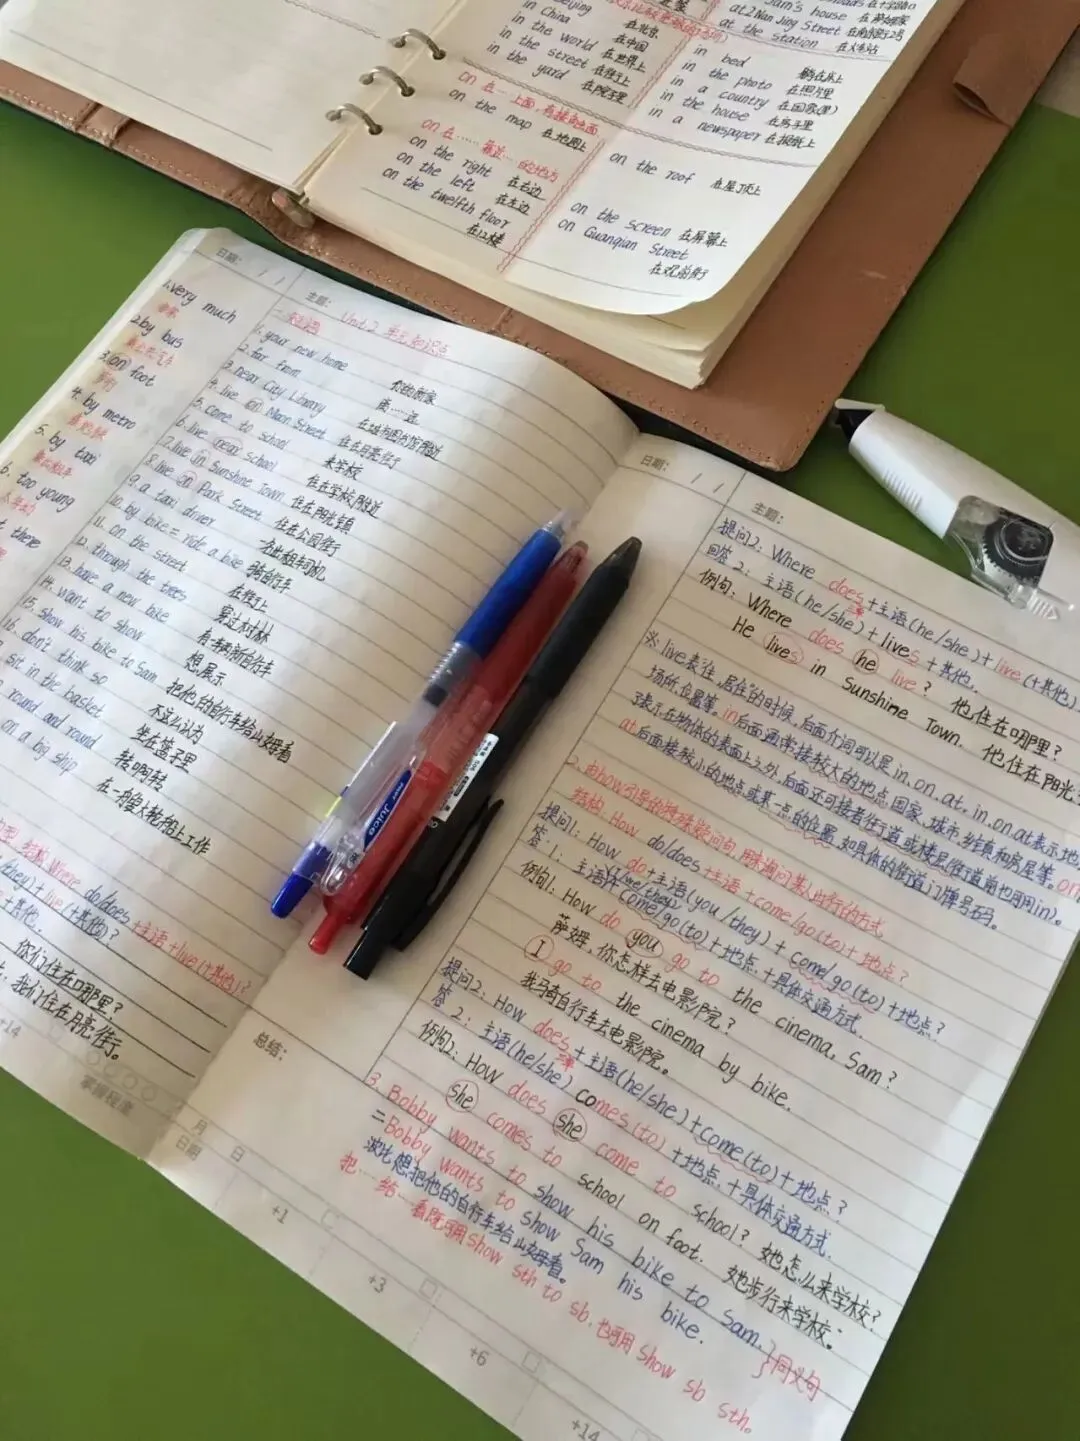 in China 在中国
in the world 在世界上
in the street 在街上
in the yard 在院子里
on 在…上面,有接触面
on the map 在地图上
on 在……靠近…的地方
on the right 在右边
on the left 在左边
on the twelfth floor
在12楼
Sam's house
at 2 Nan Jing Street 在南京街2号
at the station 在火车站
in bed 躺在床上
in the photo 在照片里
in a country 在国家(里)
in the house 在房子里
in a newspaper 在报纸上
on the roof 在屋顶上
on the screen 在屏幕上
on Guanqian Street
在观前街
日期: / /
1.very much
2.by bus
3.on foot
4.by metro
5.by taxi
6.too young
there
主题: Unit 2 单元知识点
1.your new home 你的新家
2.far from 离……远
3.near City Library 在城市图书馆附近
4.live on Moon Street 住在月亮街
5.come to school 来学校
6.live near school 住在学校附近
7.live in Sunshine Town 住在阳光镇
8.live on Park Street 住在公园街
9.a taxi driver 一名出租车司机
10.by bike = ride a bike 骑自行车
11.on the street 在街上
12.through the trees 穿过树林
13.have a new bike 有一辆新自行车
14.want to show 想展示
15.show his bike to Sam 把他的自行车给山姆看
16.don't think so 不这么认为
sit in the basket 坐在篮子里
round and round 转啊转
on a big ship 在一艘大轮船上工作
结构:Where do/does+主语+live(+其他)?
they)+live(+其他)
+其他.
你们住在哪里?
我们住在月亮街。
+14
掌握程度
总结:
月 日
日期
+1
+3
+6
+14
日期: / /
主题:
提问2: Where does+主语(he/she)+live(+其他)
回答2: 主语(he/she)+lives+其他.
例句: Where does he live? 他住在哪里?
He lives in Sunshine Town. 他住在阳光
※live表“住,居住”的时候,后面介词可以是in,on,at,in,on,at表示地
场所,位置等,in后面通常接较大的地点,国家、城市、乡镇和房屋等。on
表示在物体的表面上之外,后面还可接着街道或楼层(街道前也可用in)。
at后面接较小的地点或某一点的位置,如具体的街道门牌号码。
2.由how引导的特殊疑问句,用来询问某人出行的方式
结构: How do/does+主语+come/go(to)+地点?
提问1: How do+主语(you/they)+come/go(to)+地点?
答1: 主语(I/we/they)+come/go(to)+地点+具体交通方式.
例句1: How do you go to the cinema, Sam?
萨姆,你怎样去电影院?
I go to the cinema by bike.
我骑自行车去电影院。
提问2: How does+主语(he/she)+come(to)+地点?
答2: 主语(he/she)comes(to)+地点+具体交通方式.
例句2: How does she come to school? 她怎么来学校?
she comes to school on foot. 她步行来学校.
3.Bobby wants to show his bike to Sam.
=Bobby wants to show Sam his bike. }同义句
波比想把他的自行车给山姆看。
把…给…看既可用show sth to sb,也可用show sb sth。